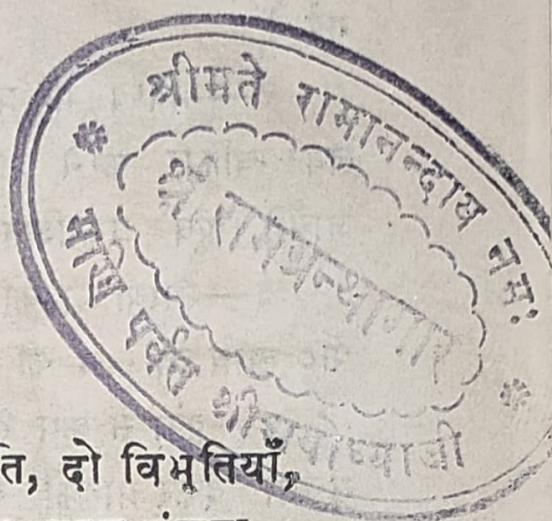 श्रीमते रामानन्दाय नमः
श्री रामग्रन्थागार
मणि पर्वत श्रीअयोध्याजी
ति, दो विभूतियाँ,